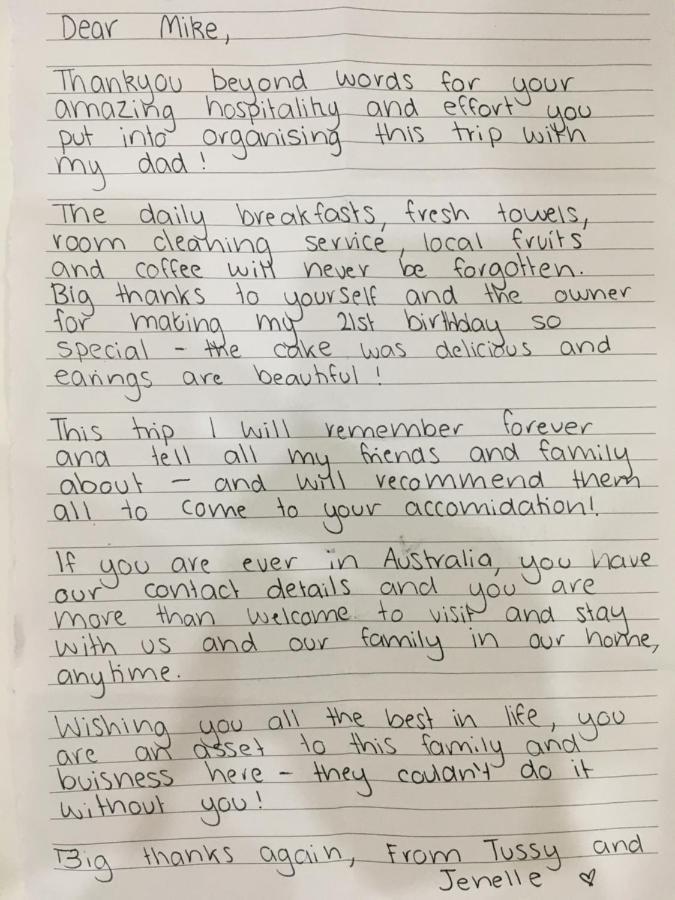 Dear Mike,
Thankyou beyond words for your
amazing hospitality and effort you
put into organising this trip with
my dad!
The daily breakfasts, fresh towels,
room cleaning service, local fruits
and coffee will never be forgotten.
Big thanks to yourself and the owner
for making my 21st birthday so
special - the cake was delicious and
earings are beautiful!
This trip I will remember forever
and tell all my friends and family
about - and will recommend them
all to come to your accomidation!
If you are ever in Australia, you have
our contact details and you are
more than welcome to visit and stay
with us and our family in our home,
anytime.
Wishing you all the best in life, you
are an asset to this family and
buisness here - they couldn't do it
without you!
Big thanks again, From Tussy and
Jenelle ♡